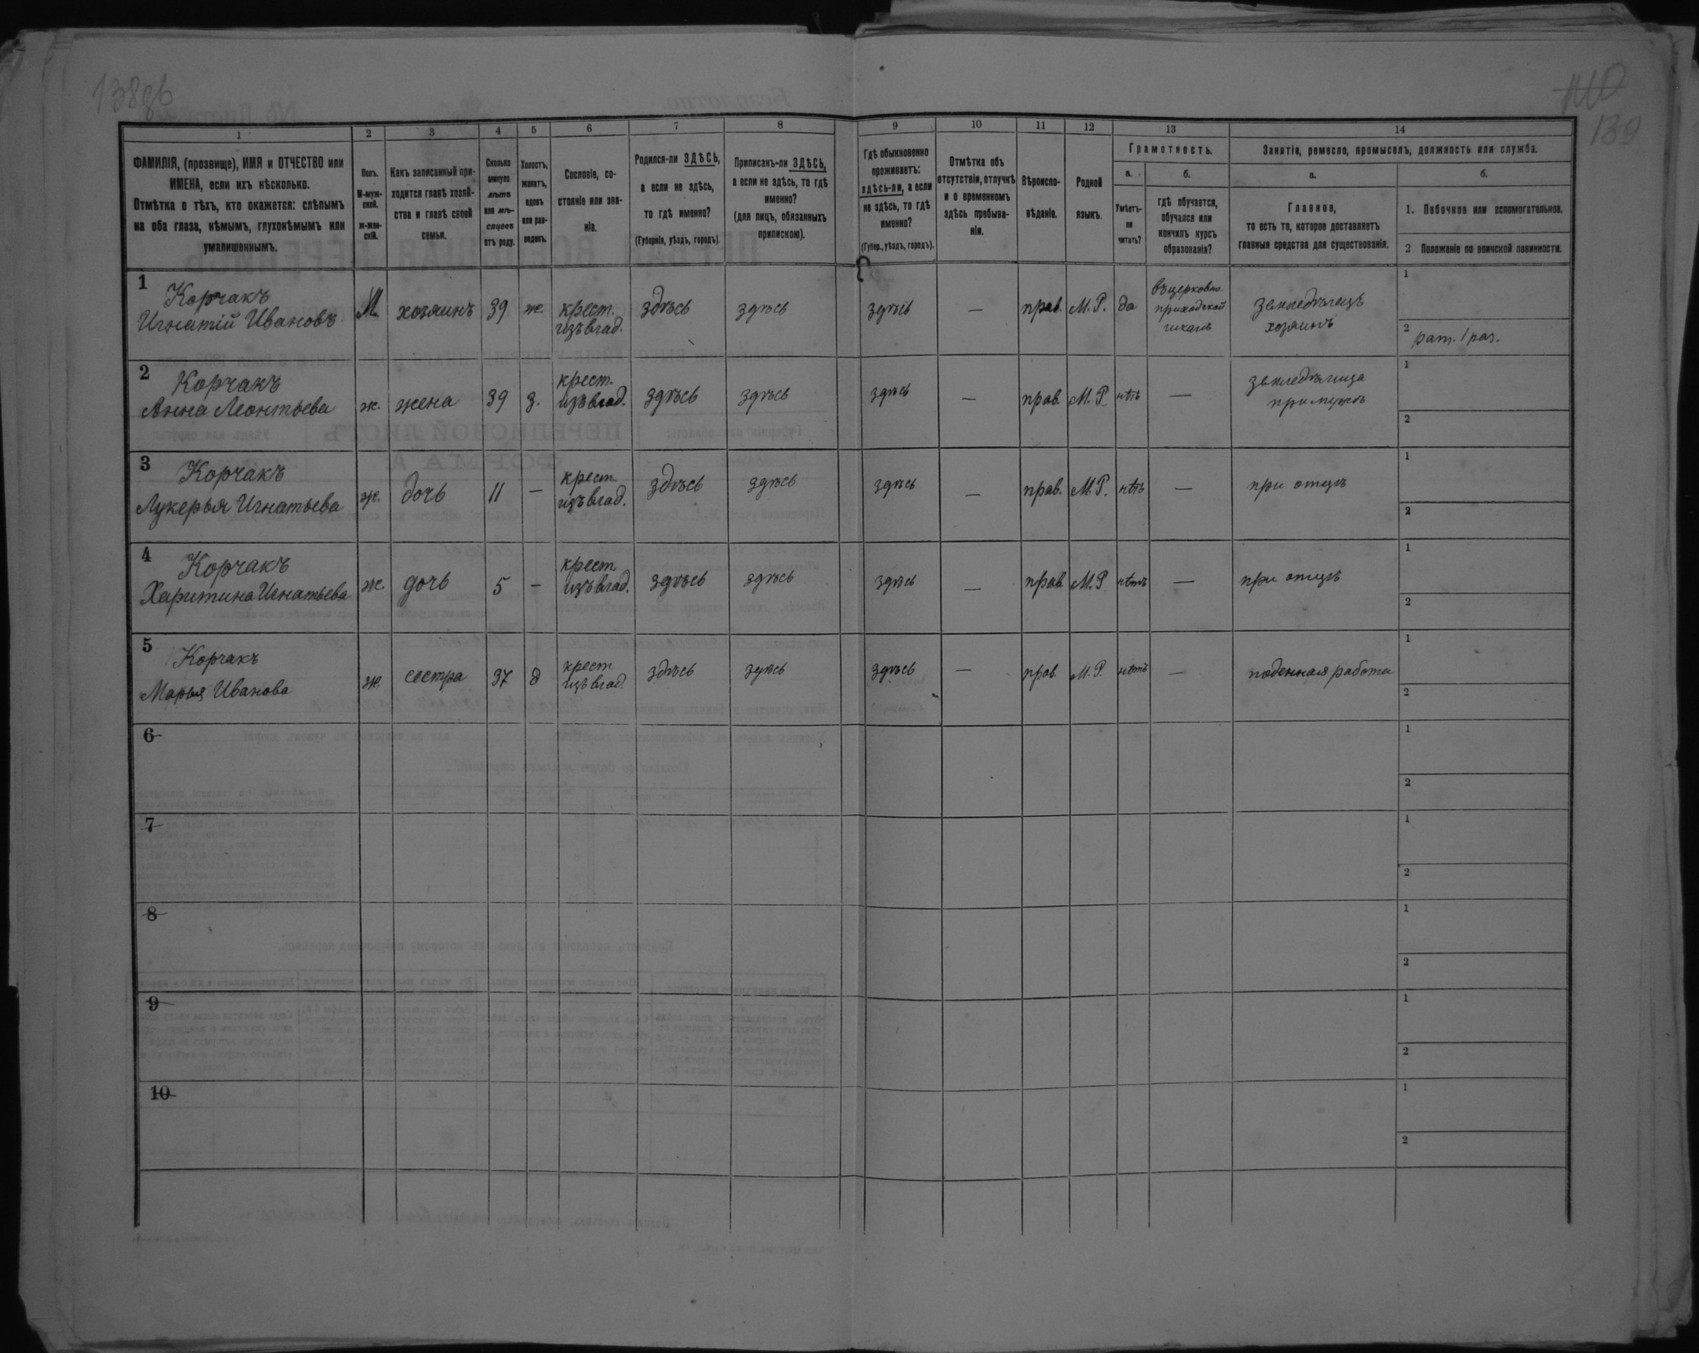 138об
139
1
2
3
4
5
6
7
8
9
10
11
12
13
14
ФАМИЛІЯ, (прозвище), ИМЯ и ОТЧЕСТВО или ИМЕНА, если ихъ нѣсколько.
Отмѣтка о тѣхъ, кто окажется: слѣпымъ на оба глаза, нѣмымъ, глухонѣмымъ или умалишеннымъ.
Полъ.
М-муж-
ской.
ж-жен-
скій.
Какъ записанный при-
ходится главѣ хозяй-
ства и главѣ своей
семьи.
Сколько
минуло
лѣтъ
или мѣ-
сяцевъ
отъ роду.
Холостъ,
женатъ,
вдовъ
или раз-
веденъ.
Сословіе, со-
стояніе или зва-
ніе.
Родился-ли ЗДѢСЬ,
а если не здѣсь,
то гдѣ именно?
(Губернія, уѣздъ, городъ).
Приписанъ-ли ЗДѢСЬ,
а если не здѣсь, то гдѣ
именно?
(для лицъ, обязанныхъ
припискою).
Гдѣ обыкновенно
проживаетъ:
здѣсь-ли, а если
не здѣсь, то гдѣ
именно?
(Губер., уѣздъ, городъ).
Отмѣтка объ
отсутствіи, отлучкѣ
и о временномъ
здѣсь пребыва-
ніи.
Вѣроиспо-
вѣданіе.
Родной
языкъ.
Грамотность.
а.
Умѣетъ-
ли
читать?
б.
гдѣ обучается,
обучался или
кончилъ курсъ
образованія?
Занятіе, ремесло, промыселъ, должность или служба.
а.
Главное,
то есть то, которое доставляетъ
главныя средства для существованія.
б.
1. Побочное или вспомогательное.
2 Положеніе по воинской повинности.
1 Корчакъ
Игнатій Ивановъ
М хозяинъ 39 ж. крест.
изъ влад.
здѣсь здѣсь здѣсь — прав. М. Р. да въ церковно
приходской
школѣ
земледѣлецъ
хозяинъ
1
2 рат. 1 раз.
2 Корчакъ
Анна Леонтьева
ж. жена 39 з. крест.
изъ влад.
здѣсь здѣсь здѣсь — прав. М. Р. нѣтъ —
земледѣлица
при мужѣ
1
2
3 Корчакъ
Лукерья Игнатьева
ж. дочь 11 — крест.
изъ влад.
здѣсь здѣсь здѣсь — прав. М. Р. нѣтъ — при отцѣ
1
2
4 Корчакъ
Харитина Игнатьева
ж. дочь 5 — крест
изъ влад.
здѣсь здѣсь здѣсь — прав М. Р нѣтъ — при отцѣ
1
2
5 Корчакъ
Марья Иванова
ж. сестра 37 д крест.
изъ влад.
здѣсь здѣсь здѣсь — прав. М. Р. нѣтъ — поденная работа
1
2
6
1
2
7
1
2
8
1
2
9
1
2
10
1
2